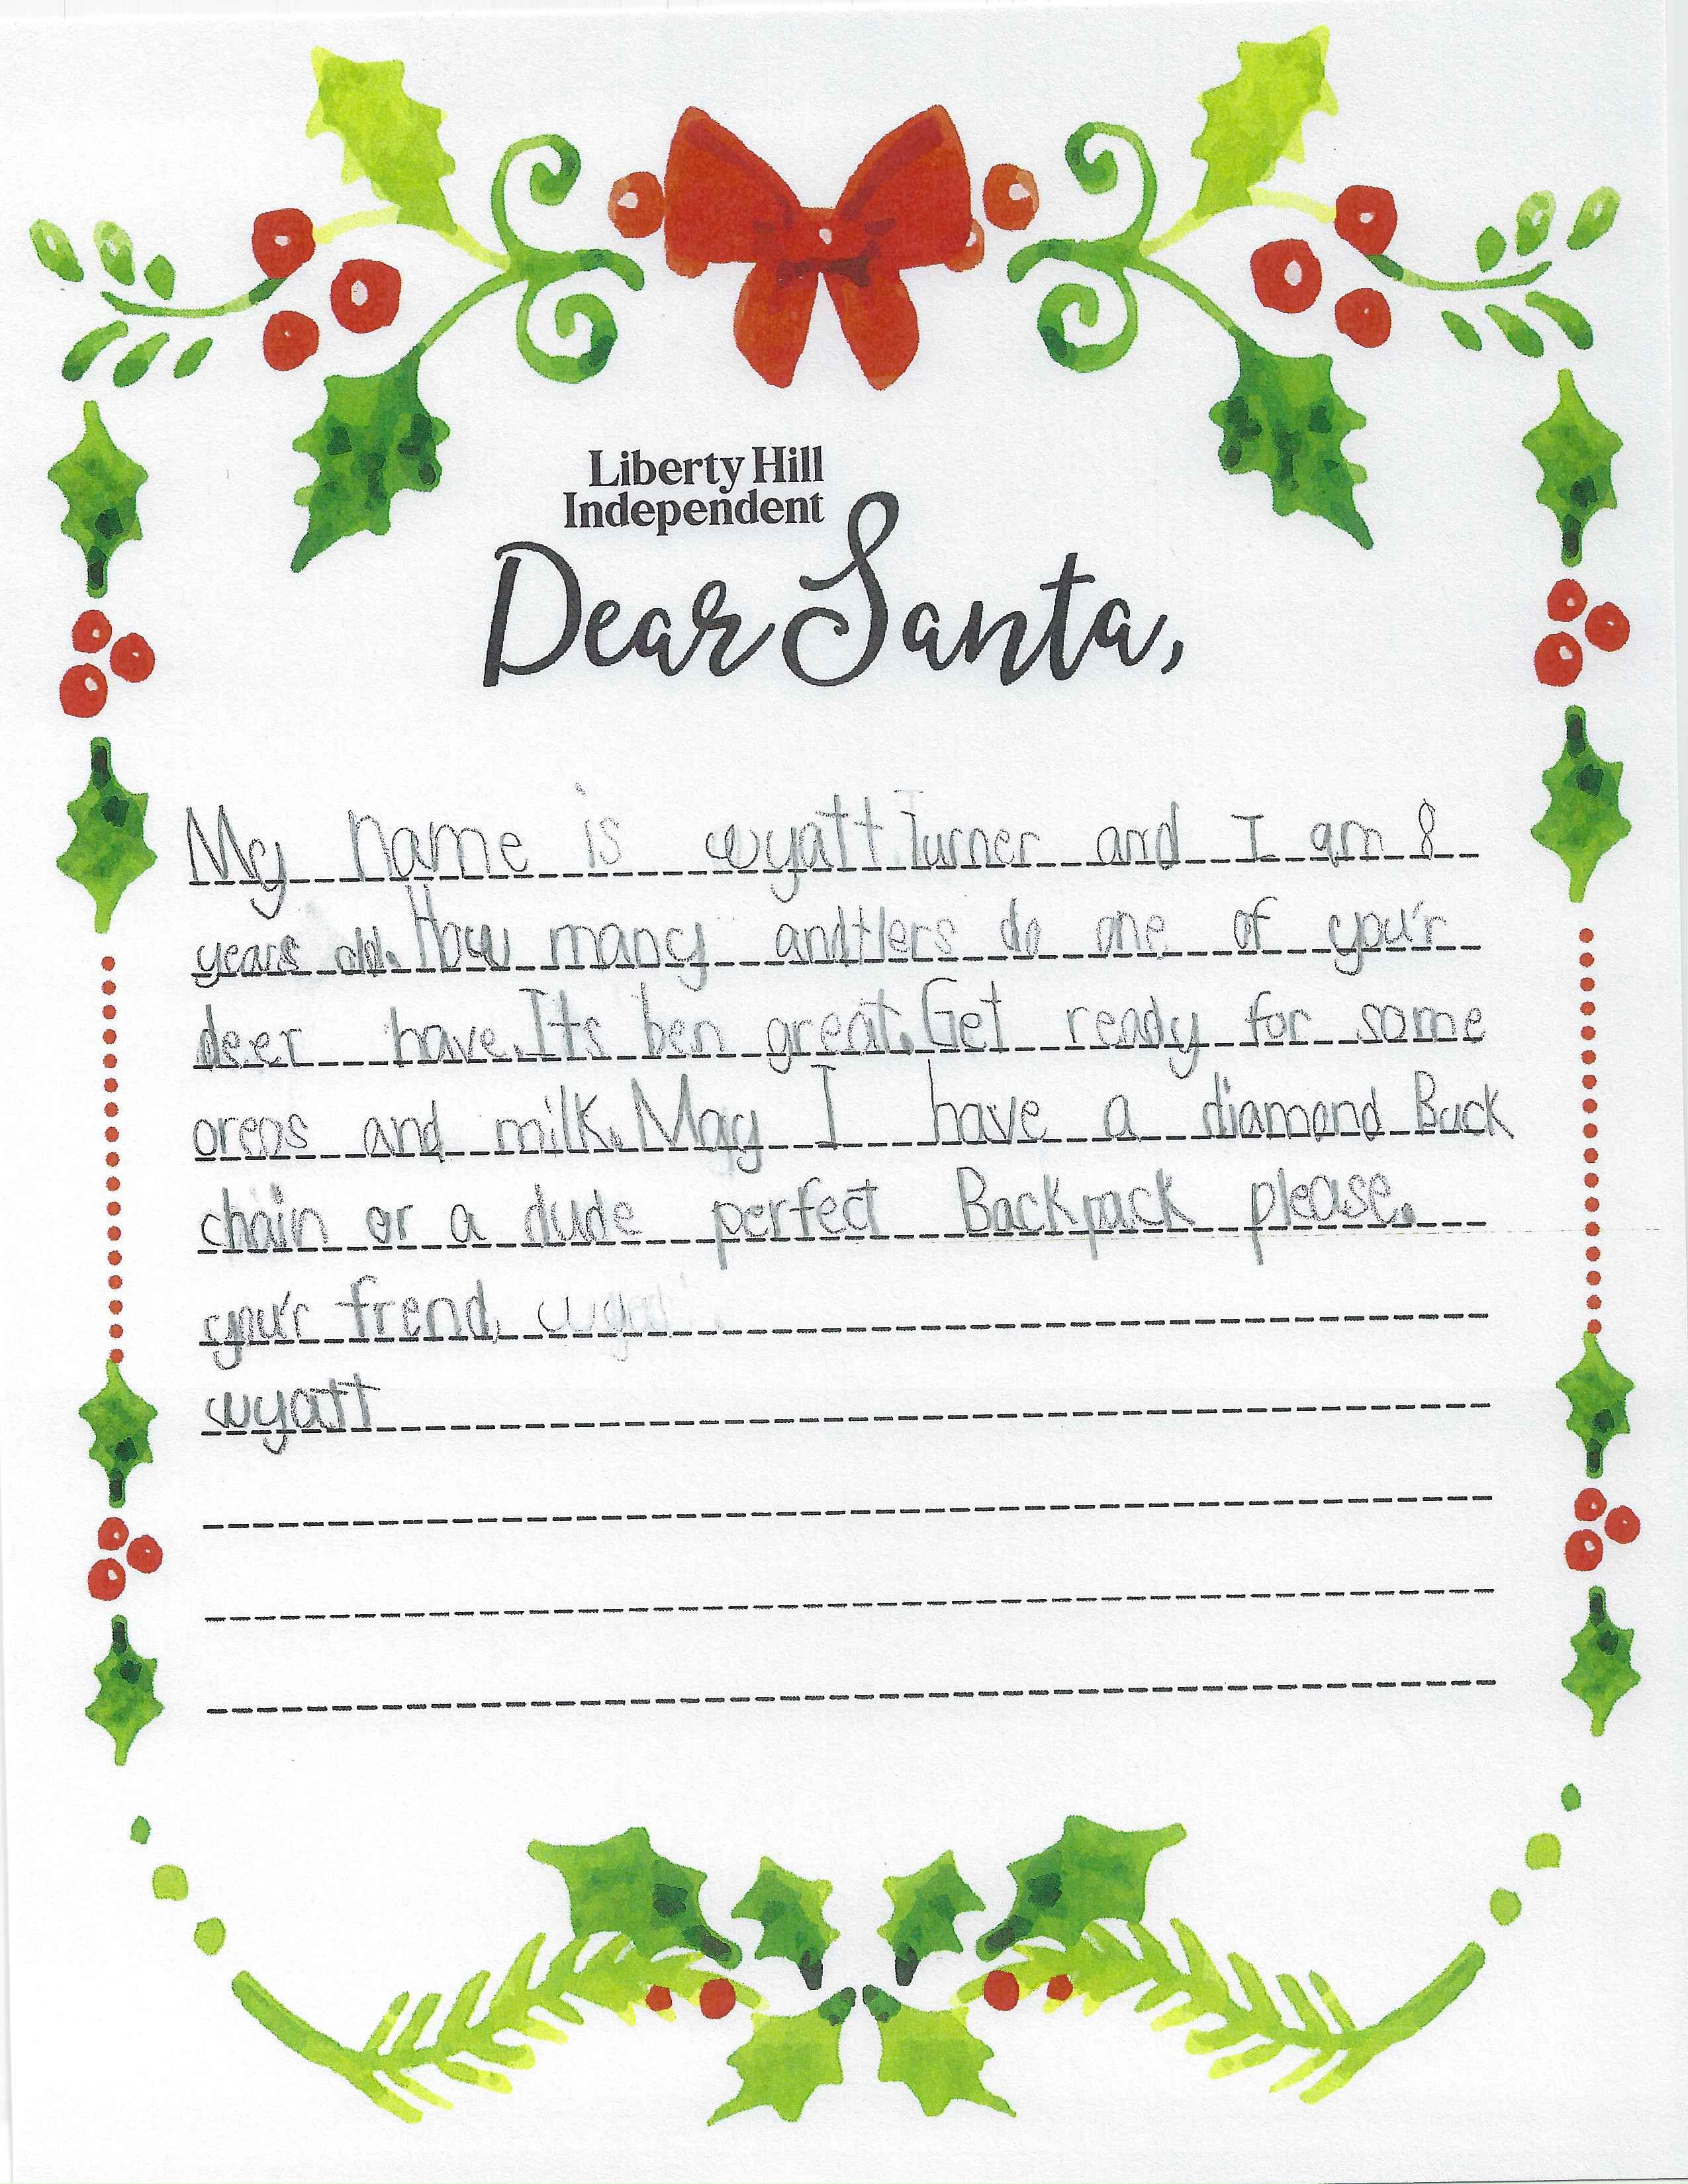 Liberty Hill
Independent
Dear Santa,
My name is wyatt Turner and I am 8
years old. How many andtlers do one of you'r
deer have. Its ben great. Get ready for some
oreos and milk. May I have a diamond Back
chain or a dude perfect Backpack please.
you'r frend,
wyatt